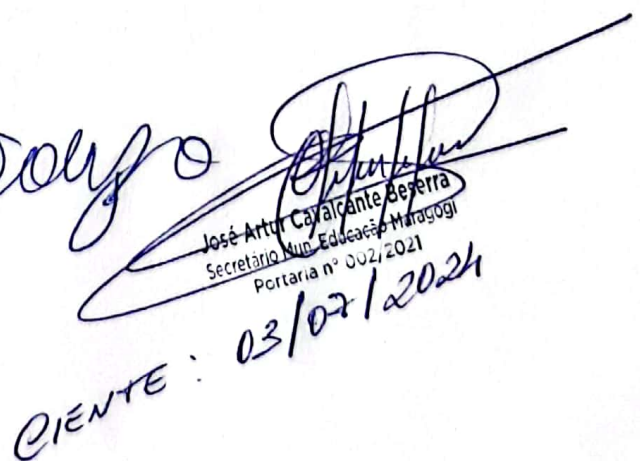 José Artur Cavalcante Beserra
Secretário Mun. Educação Maragogi
Portaria nº 002/2021
CIENTE: 03/07/2024